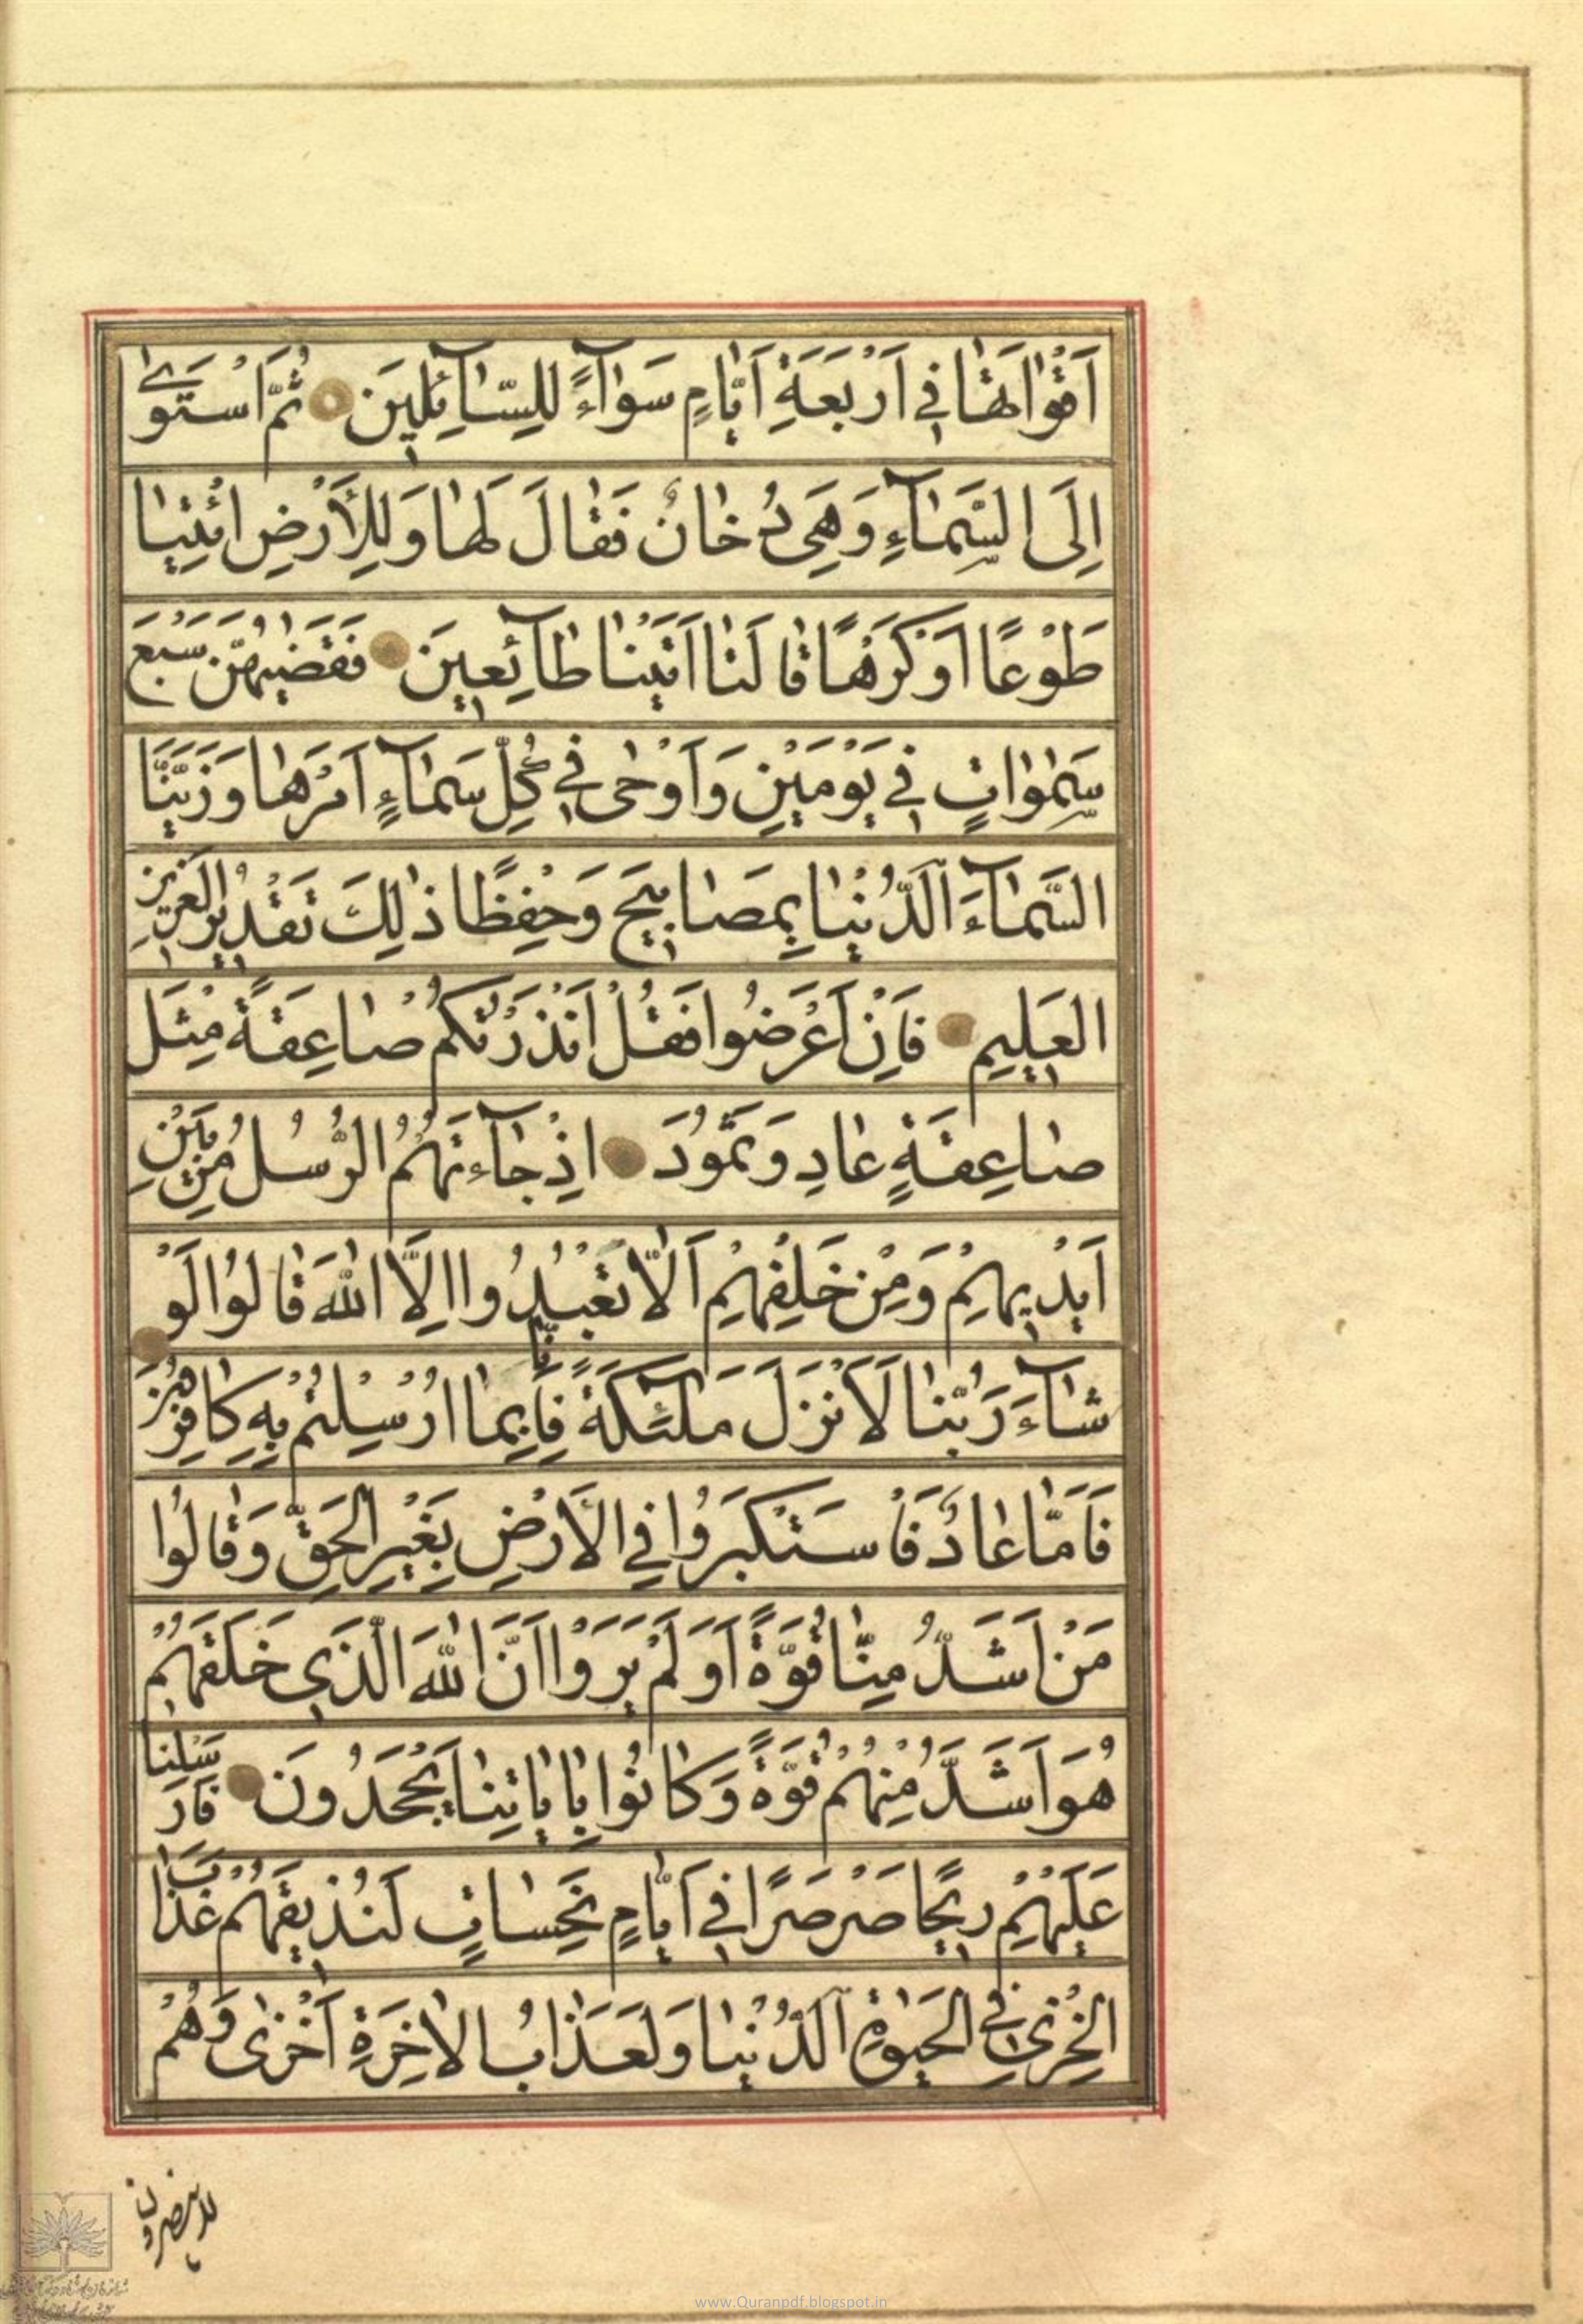 اَقْواتَهٰا فِي اَرْبَعَةِ اَيّٰامٍ سَوٰآءً لِلسّٰآئِلِينَ ثُمَّ اسْتَوىٰ
اِلَى السَّمٰآءِ وَهِيَ دُخٰانٌ فَقٰالَ لَهٰا وَلِلْاَرْضِ ائْتِيٰا
طَوْعًا اَوْ كَرْهًا قٰالَتٰا اَتَيْنٰا طٰآئِعِينَ فَقَضٰيهُنَّ سَبْعَ
سَمٰوٰاتٍ فِي يَوْمَيْنِ وَاَوْحٰى فِي كُلِّ سَمٰآءٍ اَمْرَهٰا وَزَيَّنَّا
السَّمٰآءَ الدُّنْيٰا بِمَصٰابِيحَ وَحِفْظًا ذٰلِكَ تَقْدِيرُ الْعَزِيزِ
الْعَلِيمِ فَاِنْ اَعْرَضُوا فَقُلْ اَنْذَرْتُكُمْ صٰاعِقَةً مِثْلَ
صٰاعِقَةِ عٰادٍ وَثَمُودَ اِذْ جٰآءَتْهُمُ الرُّسُلُ مِنْ بَيْنِ
اَيْدِيهِمْ وَمِنْ خَلْفِهِمْ اَلّٰا تَعْبُدُوا اِلَّا اللّٰهَ قٰالُوا لَوْ
شٰآءَ رَبُّنٰا لَاَنْزَلَ مَلٰئِكَةً فَاِنّٰا بِمٰا اُرْسِلْتُمْ بِهِ كٰافِرُونَ
فَاَمّٰا عٰادٌ فَاسْتَكْبَرُوا فِي الْاَرْضِ بِغَيْرِ الْحَقِّ وَقٰالُوا
مَنْ اَشَدُّ مِنّٰا قُوَّةً اَوَلَمْ يَرَوْا اَنَّ اللّٰهَ الَّذِي خَلَقَهُمْ
هُوَ اَشَدُّ مِنْهُمْ قُوَّةً وَكٰانُوا بِاٰيٰاتِنٰا يَجْحَدُونَ فَاَرْسَلْنٰا
عَلَيْهِمْ رِيحًا صَرْصَرًا فِي اَيّٰامٍ نَحِسٰاتٍ لِنُذِيقَهُمْ عَذٰابَ
الْخِزْيِ فِي الْحَيٰوةِ الدُّنْيٰا وَلَعَذٰابُ الْاٰخِرَةِ اَخْزٰى وَهُمْ
لا ينصرون
www.Quranpdf.blogspot.in